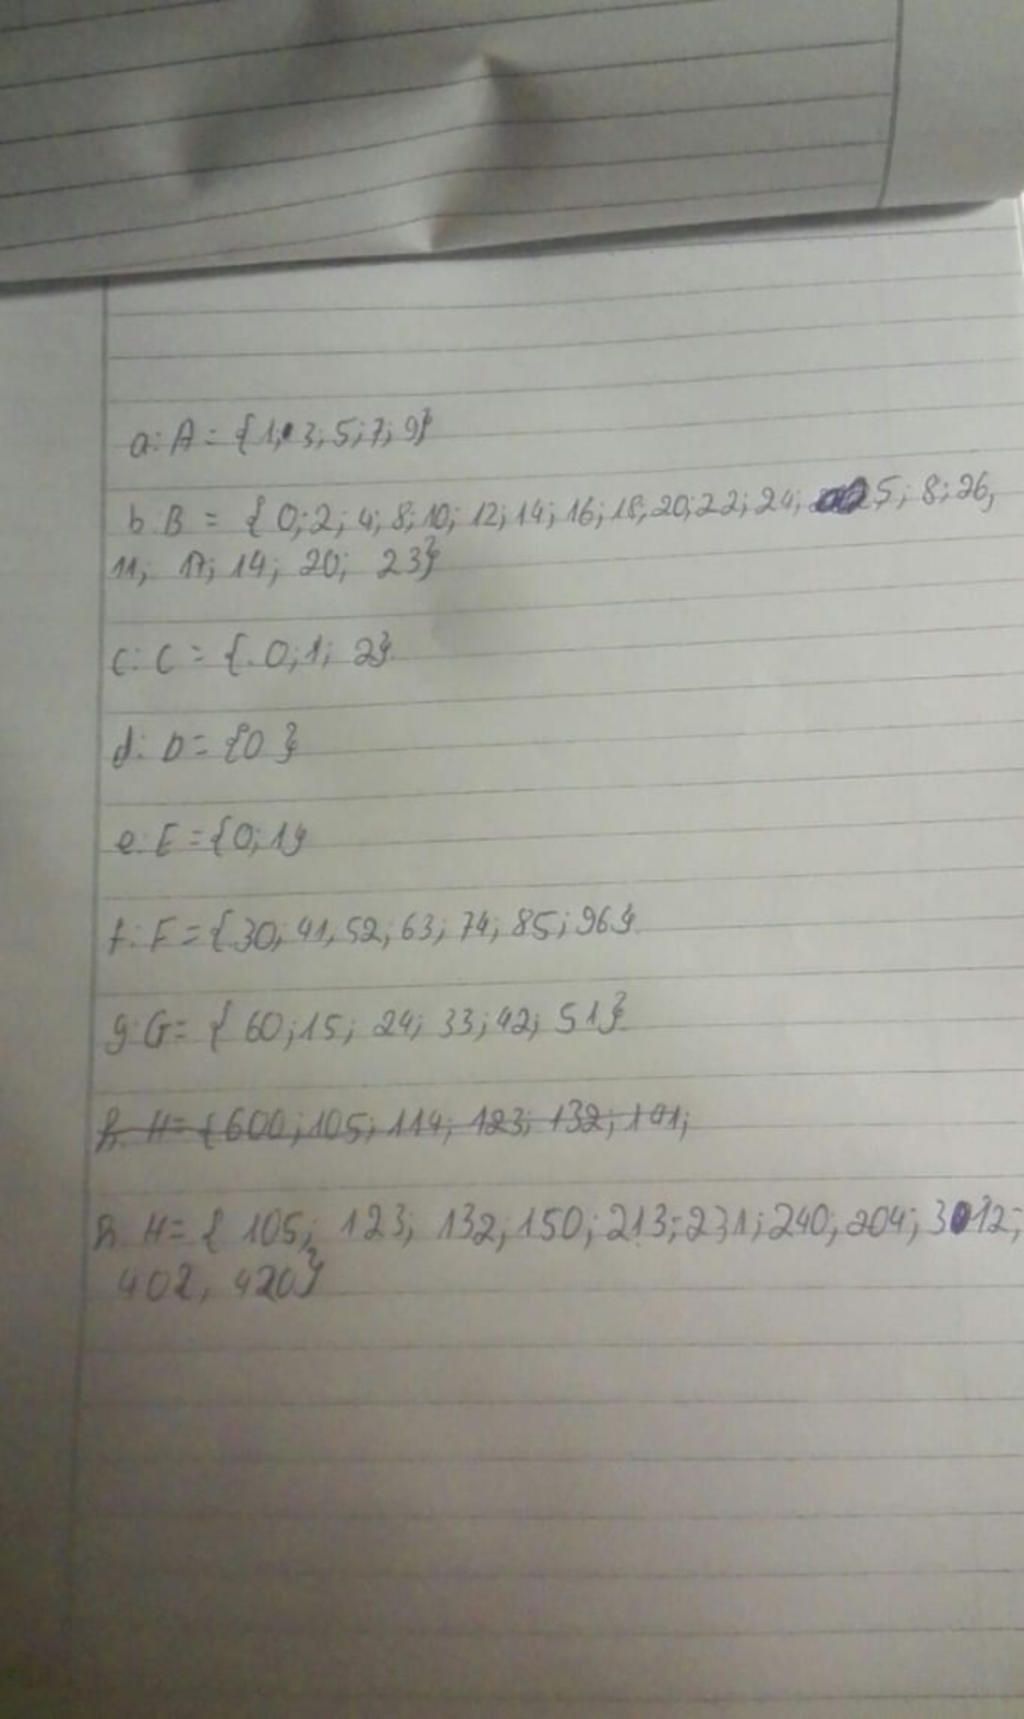 a: A = {1; 3; 5; 7; 9}
b: B = {0; 2; 4; 8; 10; 12; 14; 16; 18; 20; 22; 24; 5; 8; 26,
11; 17; 14; 20; 23}
c: C = {0; 1; 2}
d: D = {0}
e: E = {0; 1}
f: F = {30; 41, 52; 63; 74; 85; 96}
g: G = {60; 15; 24; 33; 42; 51}
h: H = {600; 105; 114; 123; 132; 141;
h H = {105; 123; 132; 150; 213; 231; 240; 204; 312;
402, 420}